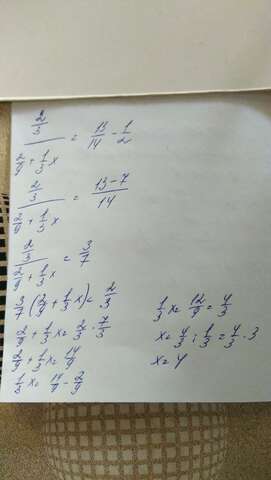 2/3 / (2/9 + 1/3 x) = 13/14 - 1/2
2/3 / (2/9 + 1/3 x) = 13-7 / 14
2/3 / (2/9 + 1/3 x) = 3/7
3/7 (2/9 + 1/3 x) = 2/3
2/9 + 1/3 x = 2/3 · 7/3
2/9 + 1/3 x = 14/9
1/3 x = 14/9 - 2/9
1/3 x = 12/9 = 4/3
x = 4/3 : 1/3 = 4/3 · 3
x = 4